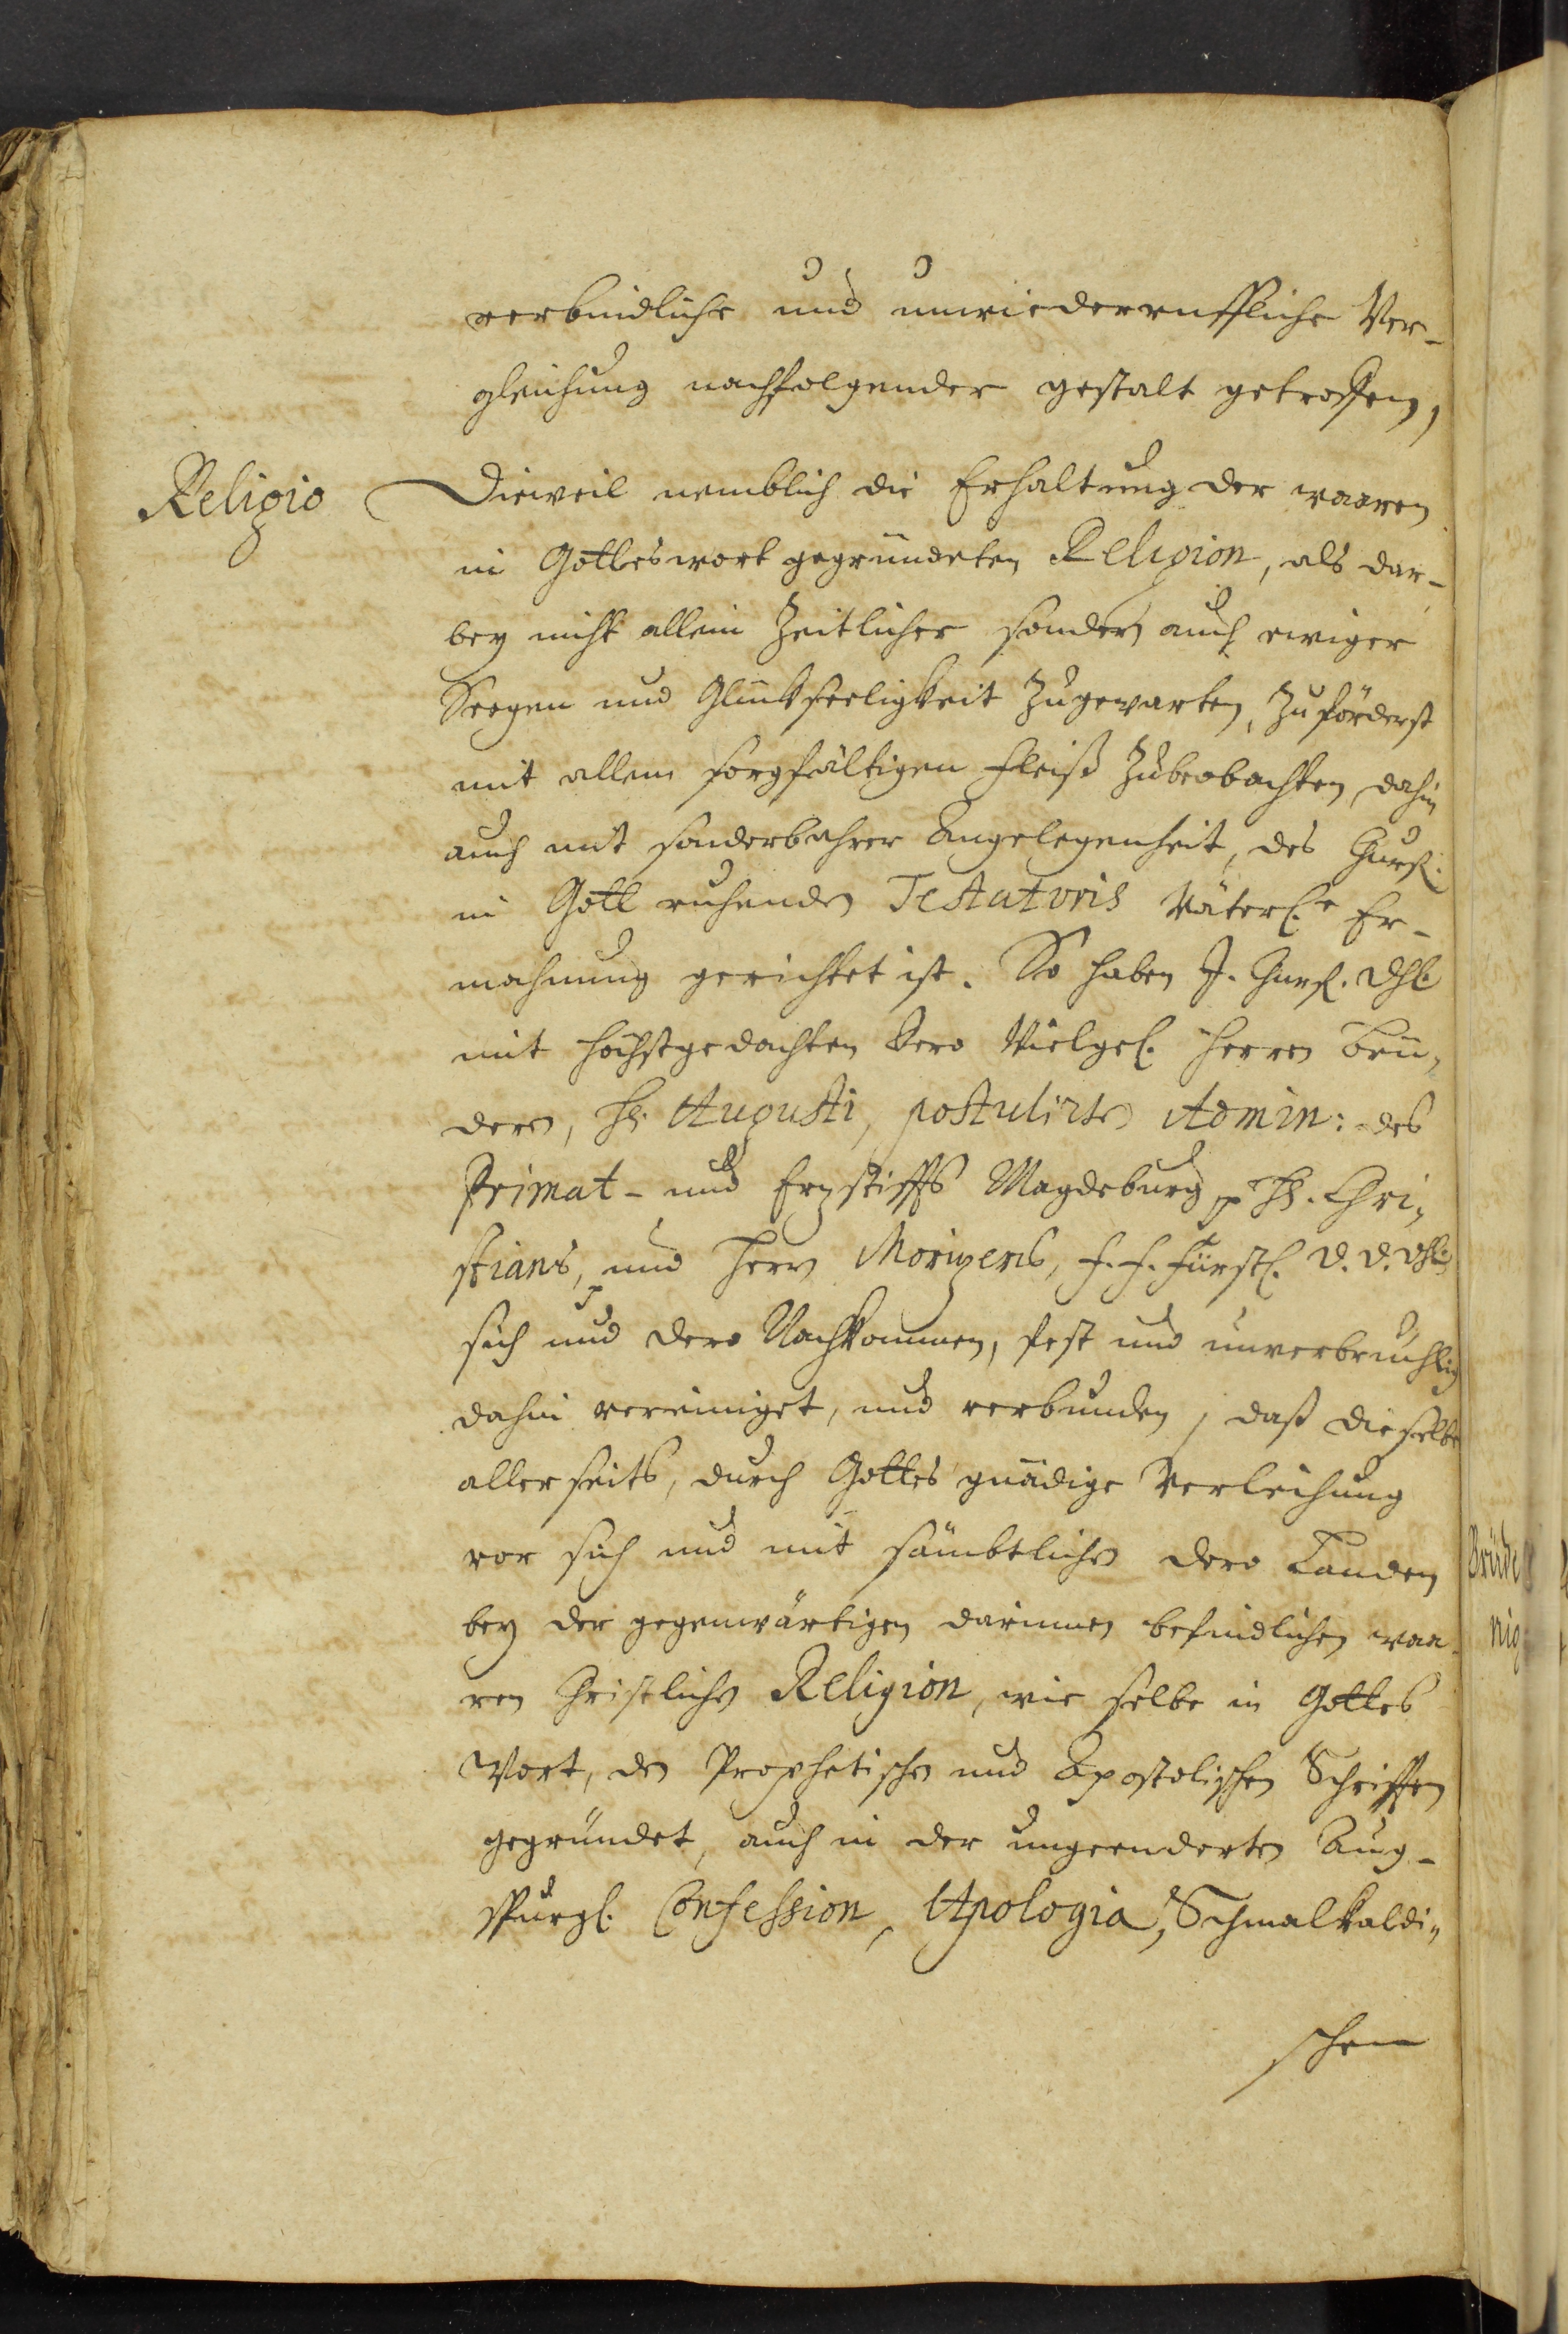 verbindliche und unwiederruffliche Ver-
gleichung nachfolgender gestalt getroffen,
Religio
Dieweil nemblich die Erhaltung der waaren
in Gotteswort gegründeten Religion, als dar-
bey nicht allein Zeitlicher sondern auch ewiger
Seegen und Glückseeligkeit zugewarten, zuförderst
mit allem sorgfältigen Fleiß zubeobachten, dahin
auch mit sonderbahrer Angelegenheit, des Churf.
in Gott ruhenden Testatoris Väterl.e Er-
mahnung gerichtet ist. So haben J. Churf. Dhl.
mit höchstgedachten Dero Vielgel. Herren Brü-
dern, Hh. Augusti, postulirten Admin: des
Primat- und Erzstiffts Magdeburg p Hh. Chri-
stians, und Herr Morizens, F. F. Fürstl. D. D. Dhl.
sich und dero Nachkommen, fest und unverbrüchlig
dahin vereiniget, und verbunden, daß dieselbe
allerseits, durch Gottes gnädige Verleihung
vor sich und mit sämbtlichen dero Landen
bey der gegenwärtigen darinnen befindlichen waa-
ren Christlichen Religion, wie selbe in Gottes
Wort, den Prophetischen und Apostolischen Schrifften
gegründet, auch in der ungeenderten Aug-
spurgl. Confession, Apologia, Schmalkaldi-
schen